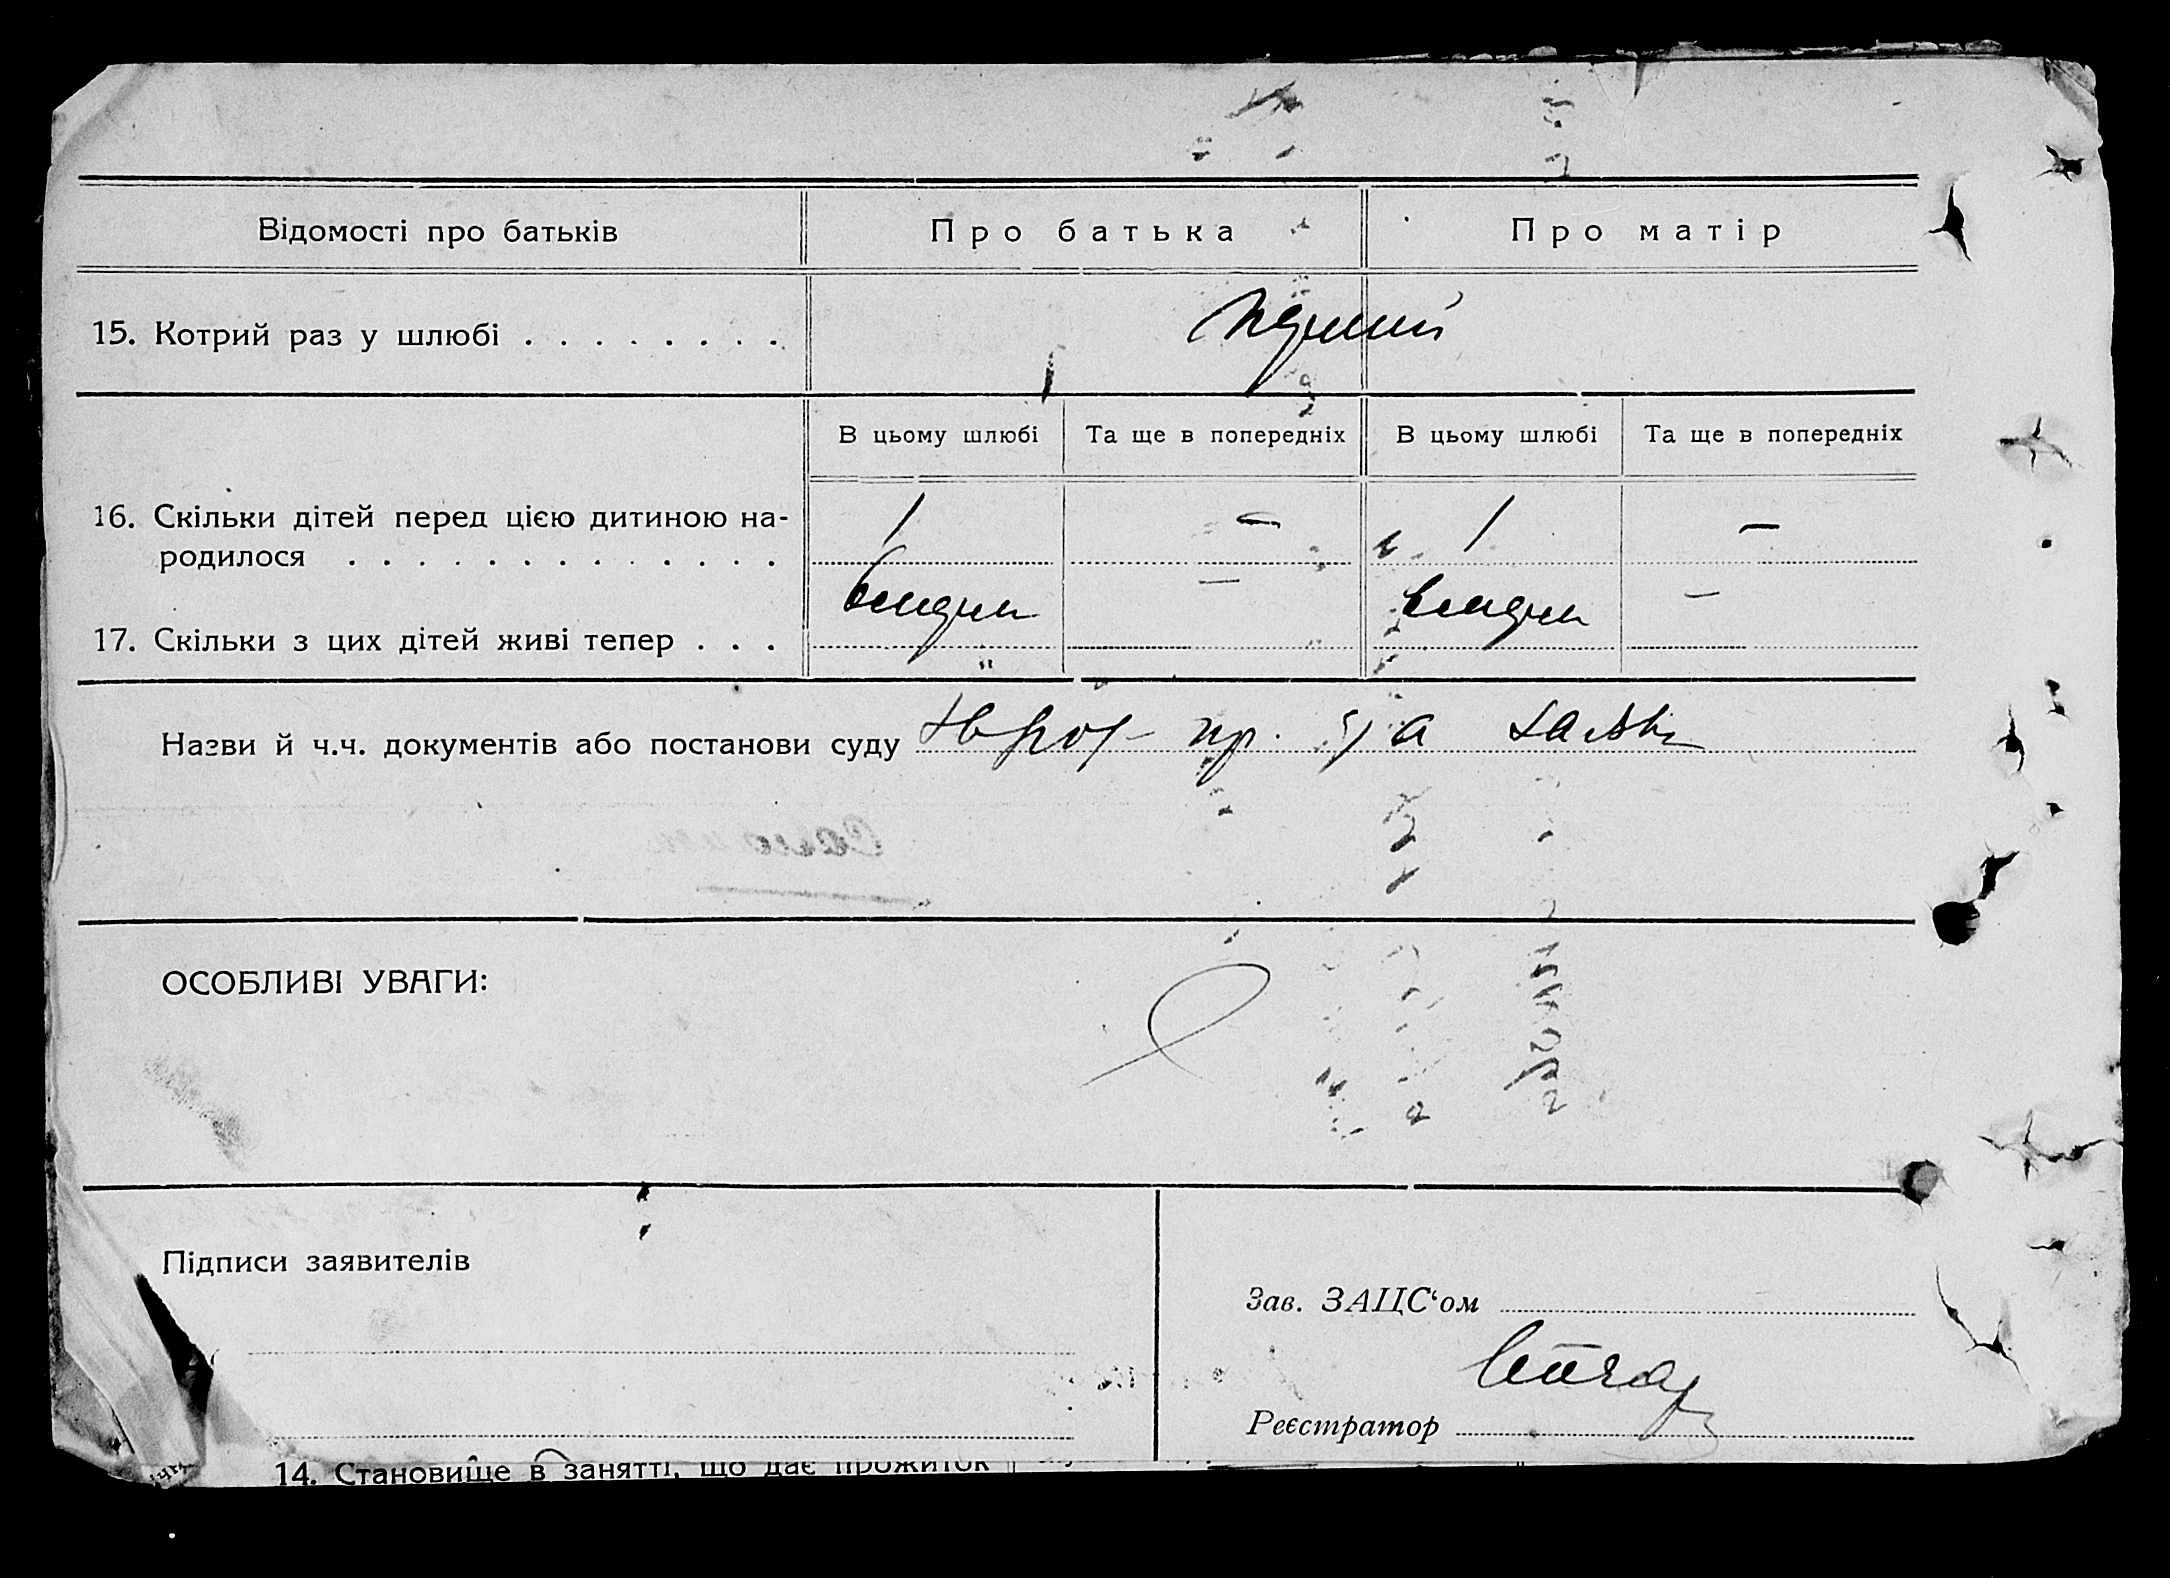 Відомості про батьків
Про батька
Про матір
15. Котрий раз у шлюбі . . . . . . . .
В цьому шлюбі
Та ще в попередніх
В цьому шлюбі
Та ще в попередніх
16. Скільки дітей перед цією дитиною на-
родилося . . . . . . . . . . . . .
1 — 1 —
17. Скільки з цих дітей живі тепер . . .
— —
Назви й ч.ч. документів або постанови суду
ОСОБЛИВІ УВАГИ:
Підписи заявителів
Зав. ЗАЦС‘ом
Реєстратор
14. Становище в занятті, що дає прожиток